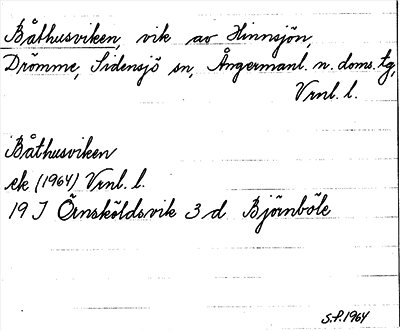 Båthusviken, vik av Hinnsjön,
Drömme, Sidensjö sn, Ångermanl. n. doms. tg,
Vrnl. l.
Båthusviken
ek (1964) Vrnl. l.
19 J Örnsköldsvik 3 d Björnböle
S.P. 1964